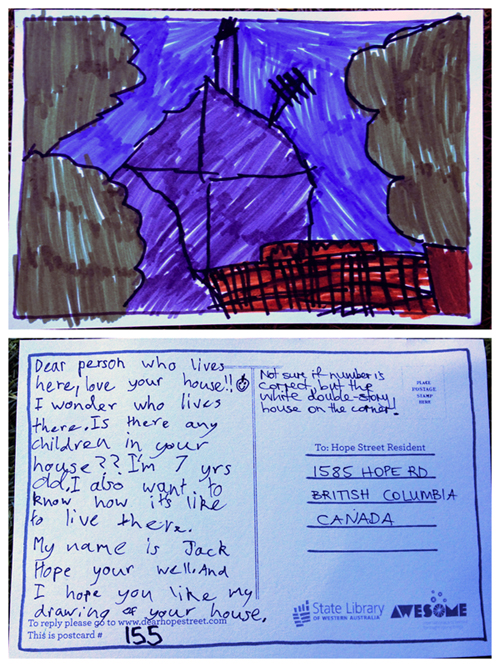 Dear person who lives
here, love your house!!
I wonder who lives
there. Is there any
children in your
house?? I'm 7 yrs
old. I also want to
know how its like
to live there.
My name is Jack
Hope your well. And
I hope you like my
drawing of your house.
To reply please go to www.dearhopestreet.com
This is postcard # 155
Not sure if number is
correct, but the
white double-story
house on the corner!
PLACE
POSTAGE
STAMP
HERE
To: Hope Street Resident
1585 HOPE RD
BRITISH COLUMBIA
CANADA
State Library
OF WESTERN AUSTRALIA
AWESOME